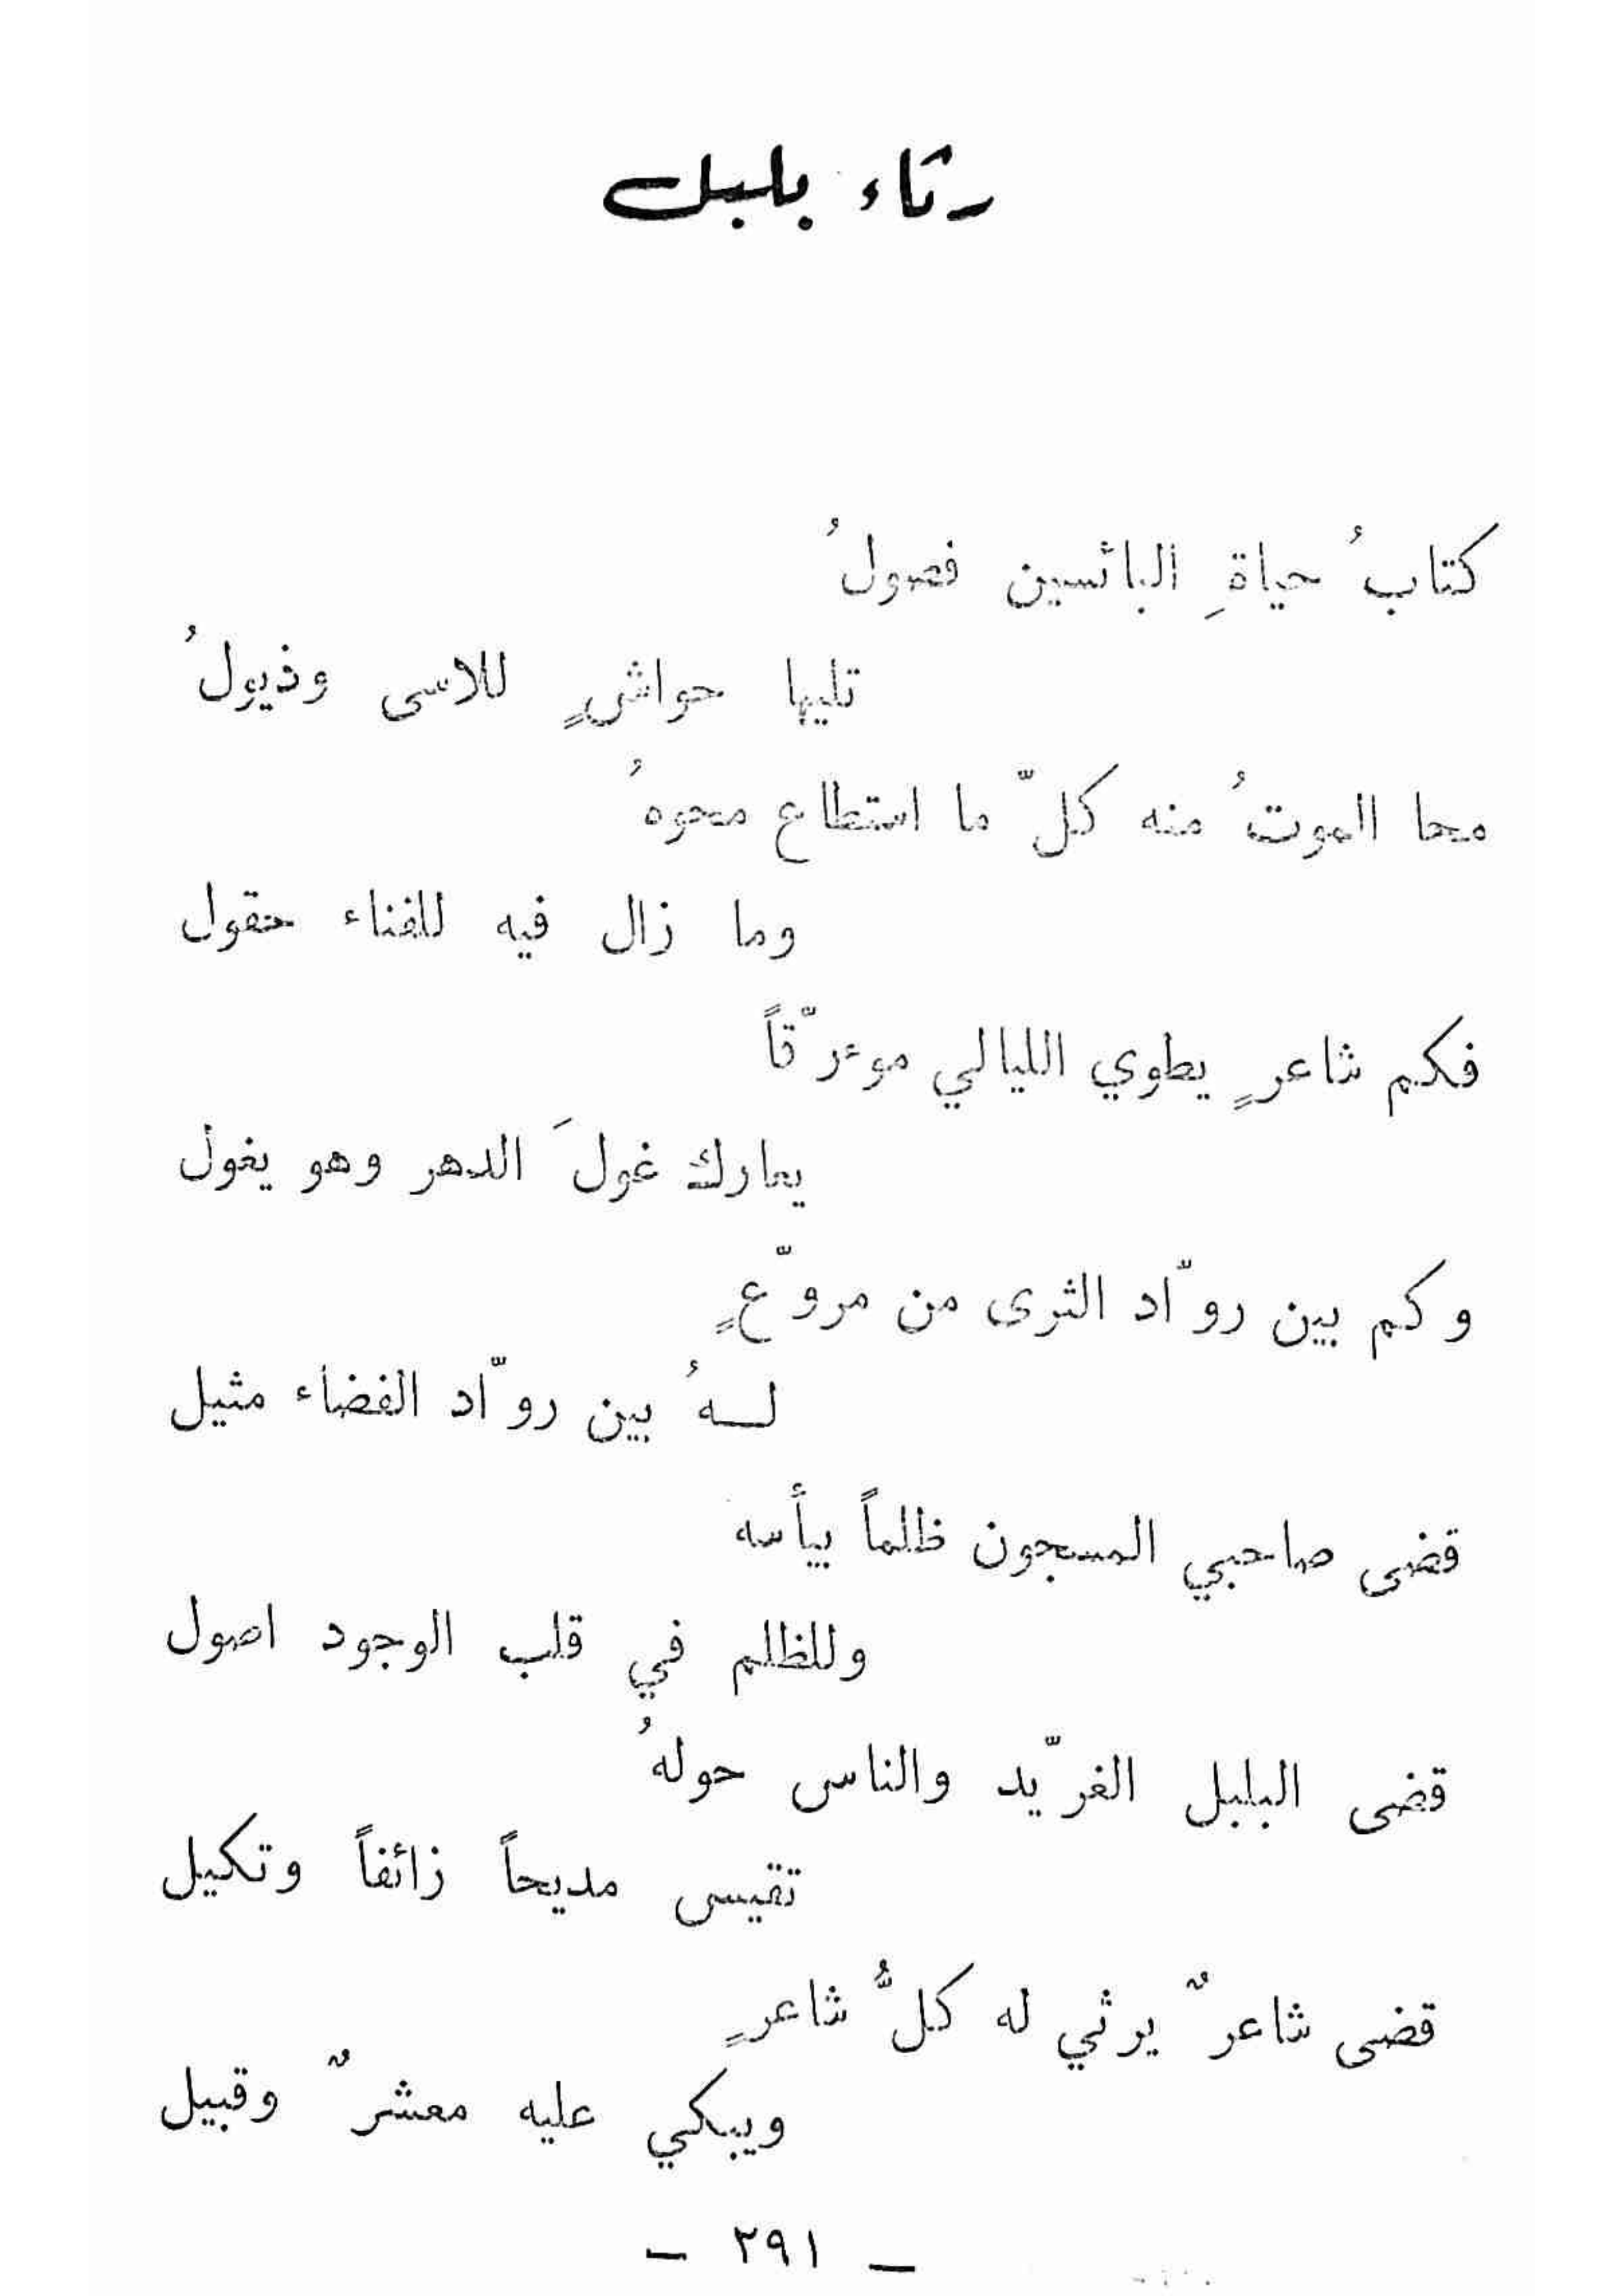 رثاء بلبل
كتابُ حياةِ البائسين فصولُ
تليها حواشٍ للاسى وذيولُ
محا الموتُ منه كلّ ما استطاع محوهُ
وما زال فيه للفناء حقول
فكم شاعرٍ يطوي الليالي موءرّقاً
يعارك غولَ الدهر وهو يغول
وكم بين روّاد الثرى من مروّعٍ
لـهُ بين روّاد الفضاء مثيل
قضى صاحبي المسجون ظلماً بيأسه
وللظلم في قلب الوجود اصول
قضى البلبل الغرّيد والناس حولهُ
تقيس مديحاً زائفاً وتكيل
قضى شاعرٌ يرثي له كلُّ شاعرٍ
ويبكي عليه معشرٌ وقبيل
– ٢٩١ –